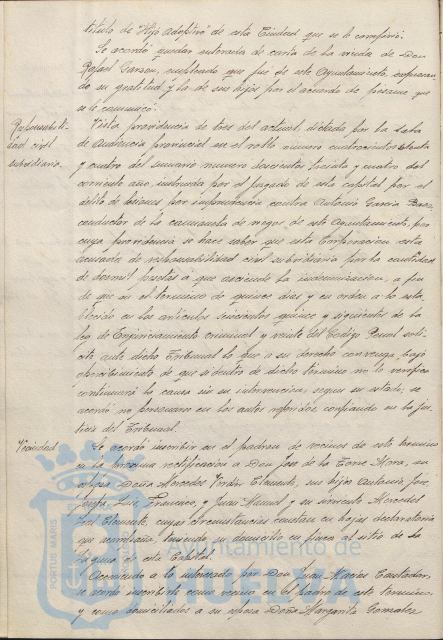 título de "Hijo adoptivo" de esta Ciudad que se le confirió.
Se acordó quedar enterados de carta de la viuda de Don
Rafael Garzon, empleado que fué de este Ayuntamiento, expresan-
do su gratitud y la de sus hijos por el acuerdo de pésame que
se le comunicó.
Responsabili-
dad civil
subsidiaria.
Vista providencia de tres del actual, dictada por la Sala
de audiencia provincial en el rollo número cuatrocientos
y cuatro del sumario número doscientos treinta y cuatro del
corriente año, instruida por el juzgado de esta capital por el
delito de lesiones por imprudencia contra Antonio Garcia
conductor de la camioneta de riegos de este Ayuntamiento, por
cuya providencia se hace saber que esta Corporación está
acusada de responsabilidad civil subsidiaria por la cantidad
de dosmil pesetas á que asciende la indemnizacion, a fin
de que en el termino de quince dias y en orden a lo esta-
blecido en los artículos seiscientos quince y siguientes de la
ley de Enjuiciamiento criminal y veinte del Código Penal soli-
cite ante dicho Tribunal lo que a su derecho convenga bajo
apercibimiento de que si dentro de dicho término no lo verifica
continuará la causa sin su intervencion, segun su estado; se
acordó no personarse en los autos referidos, confiando en la jus-
ticia del Tribunal.
Vecindad
Se acordó inscribir en el padron de vecinos de este termino
en la próxima rectificacion a Don Jose de la Torre Mora, su
esposa Doña Mercedes Clemente, sus hijos Antonio, Jose,
Josefa, Luis, Francisco, y Juan Manuel y su sirvienta Mercedes
Clemente, cuyas circunstancias constan en hojas declaratorias
que acompaña, teniendo su domicilio en finca al sitio de la
de esta Capital.
Accediendo a lo interesado por Don Juan Macias Contador,
se acordó inscribirle como vecino en el padron de este termino
y como domiciliados a su esposa Doña Margarita Gonzalez
PORTUS MARIS
Ayuntamiento de
HUELVA